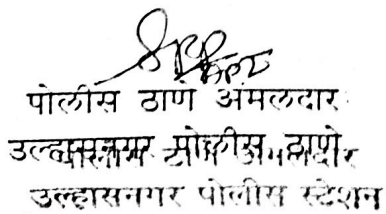 पोलीस ठाणे अंमलदार
उल्हासनगर पोलीस ठाणे
उल्हासनगर पोलीस स्टेशन